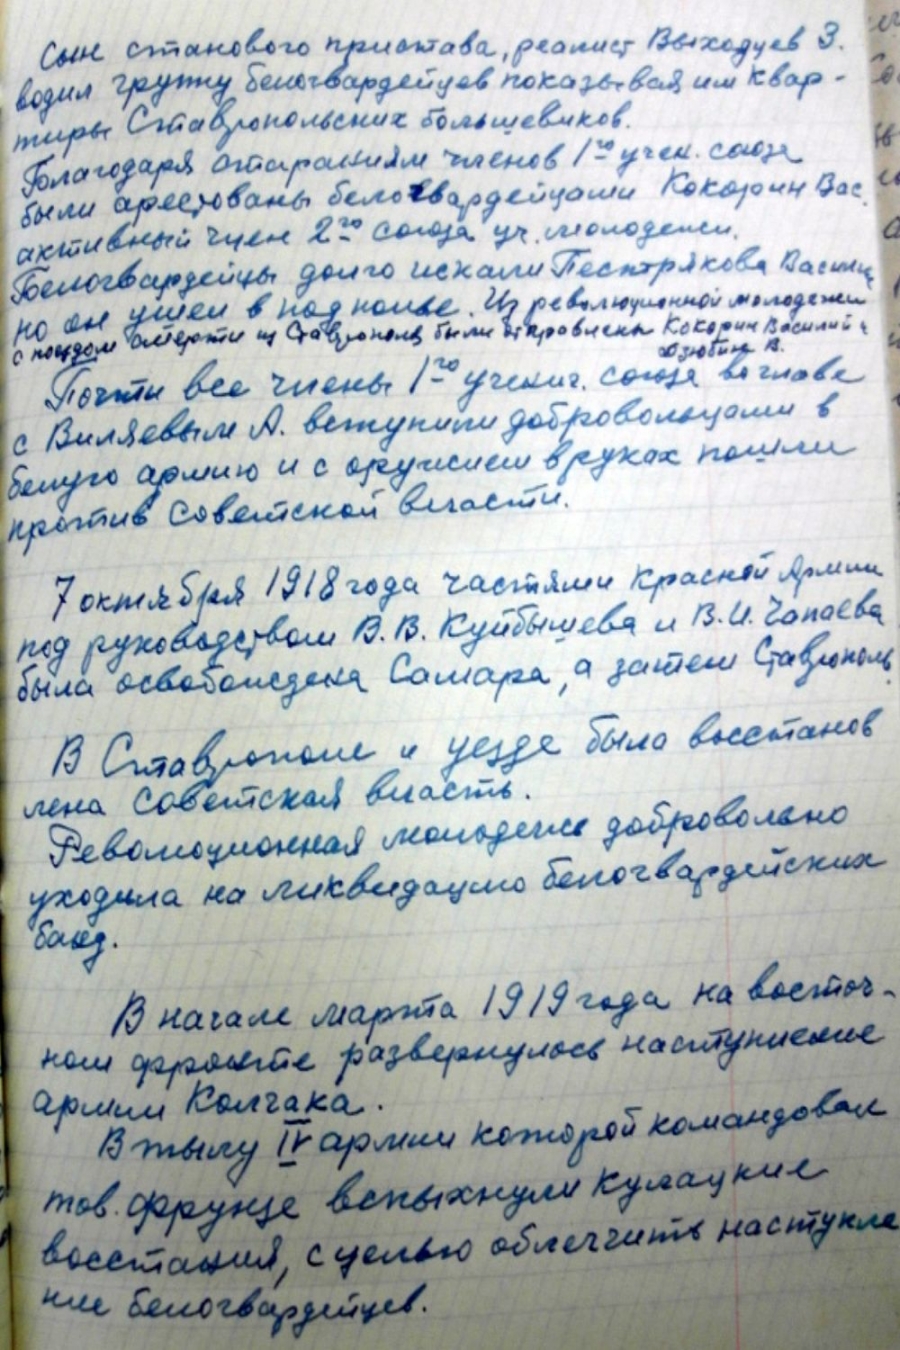 Сын станового пристава, реалист Выходцев З.
водил группу белогвардейцев показывая им квар-
тиры Ставропольских большевиков.
Благодаря стараниям членов 1го учен. союза
были арестованы белогвардейцами Кокорин Вас.
активный член 2го союза уч. молодежи.
Белогвардейцы долго искали Пестрякова Василия,
но он ушел в подполье. Из революционной молодежи
с поездом смерти из Ставрополя были отправлены Кокорин Василий и
Дзюбин В.
Почти все члены 1го ученич. союза во главе
с Виляевым А. вступили добровольцами в
белую армию и с оружием в руках пошли
против советской власти.
7 октября 1918 года частями Красной Армии
под руководством В.В. Куйбышева и В.И. Чапаева
была освобождена Самара, а затем Ставрополь.
В Ставрополе и уезде была восстанов
лена советская власть.
Революционная молодежь добровольно
уходила на ликвидацию белогвардейских
банд.
В начале марта 1919 года на восточ-
ном фронте развернулось наступление
армии Колчака.
В тылу IV армии которой командовал
тов. Фрунзе вспыхнули кулацкие
восстания, с целью облегчить наступле
ние белогвардейцев.